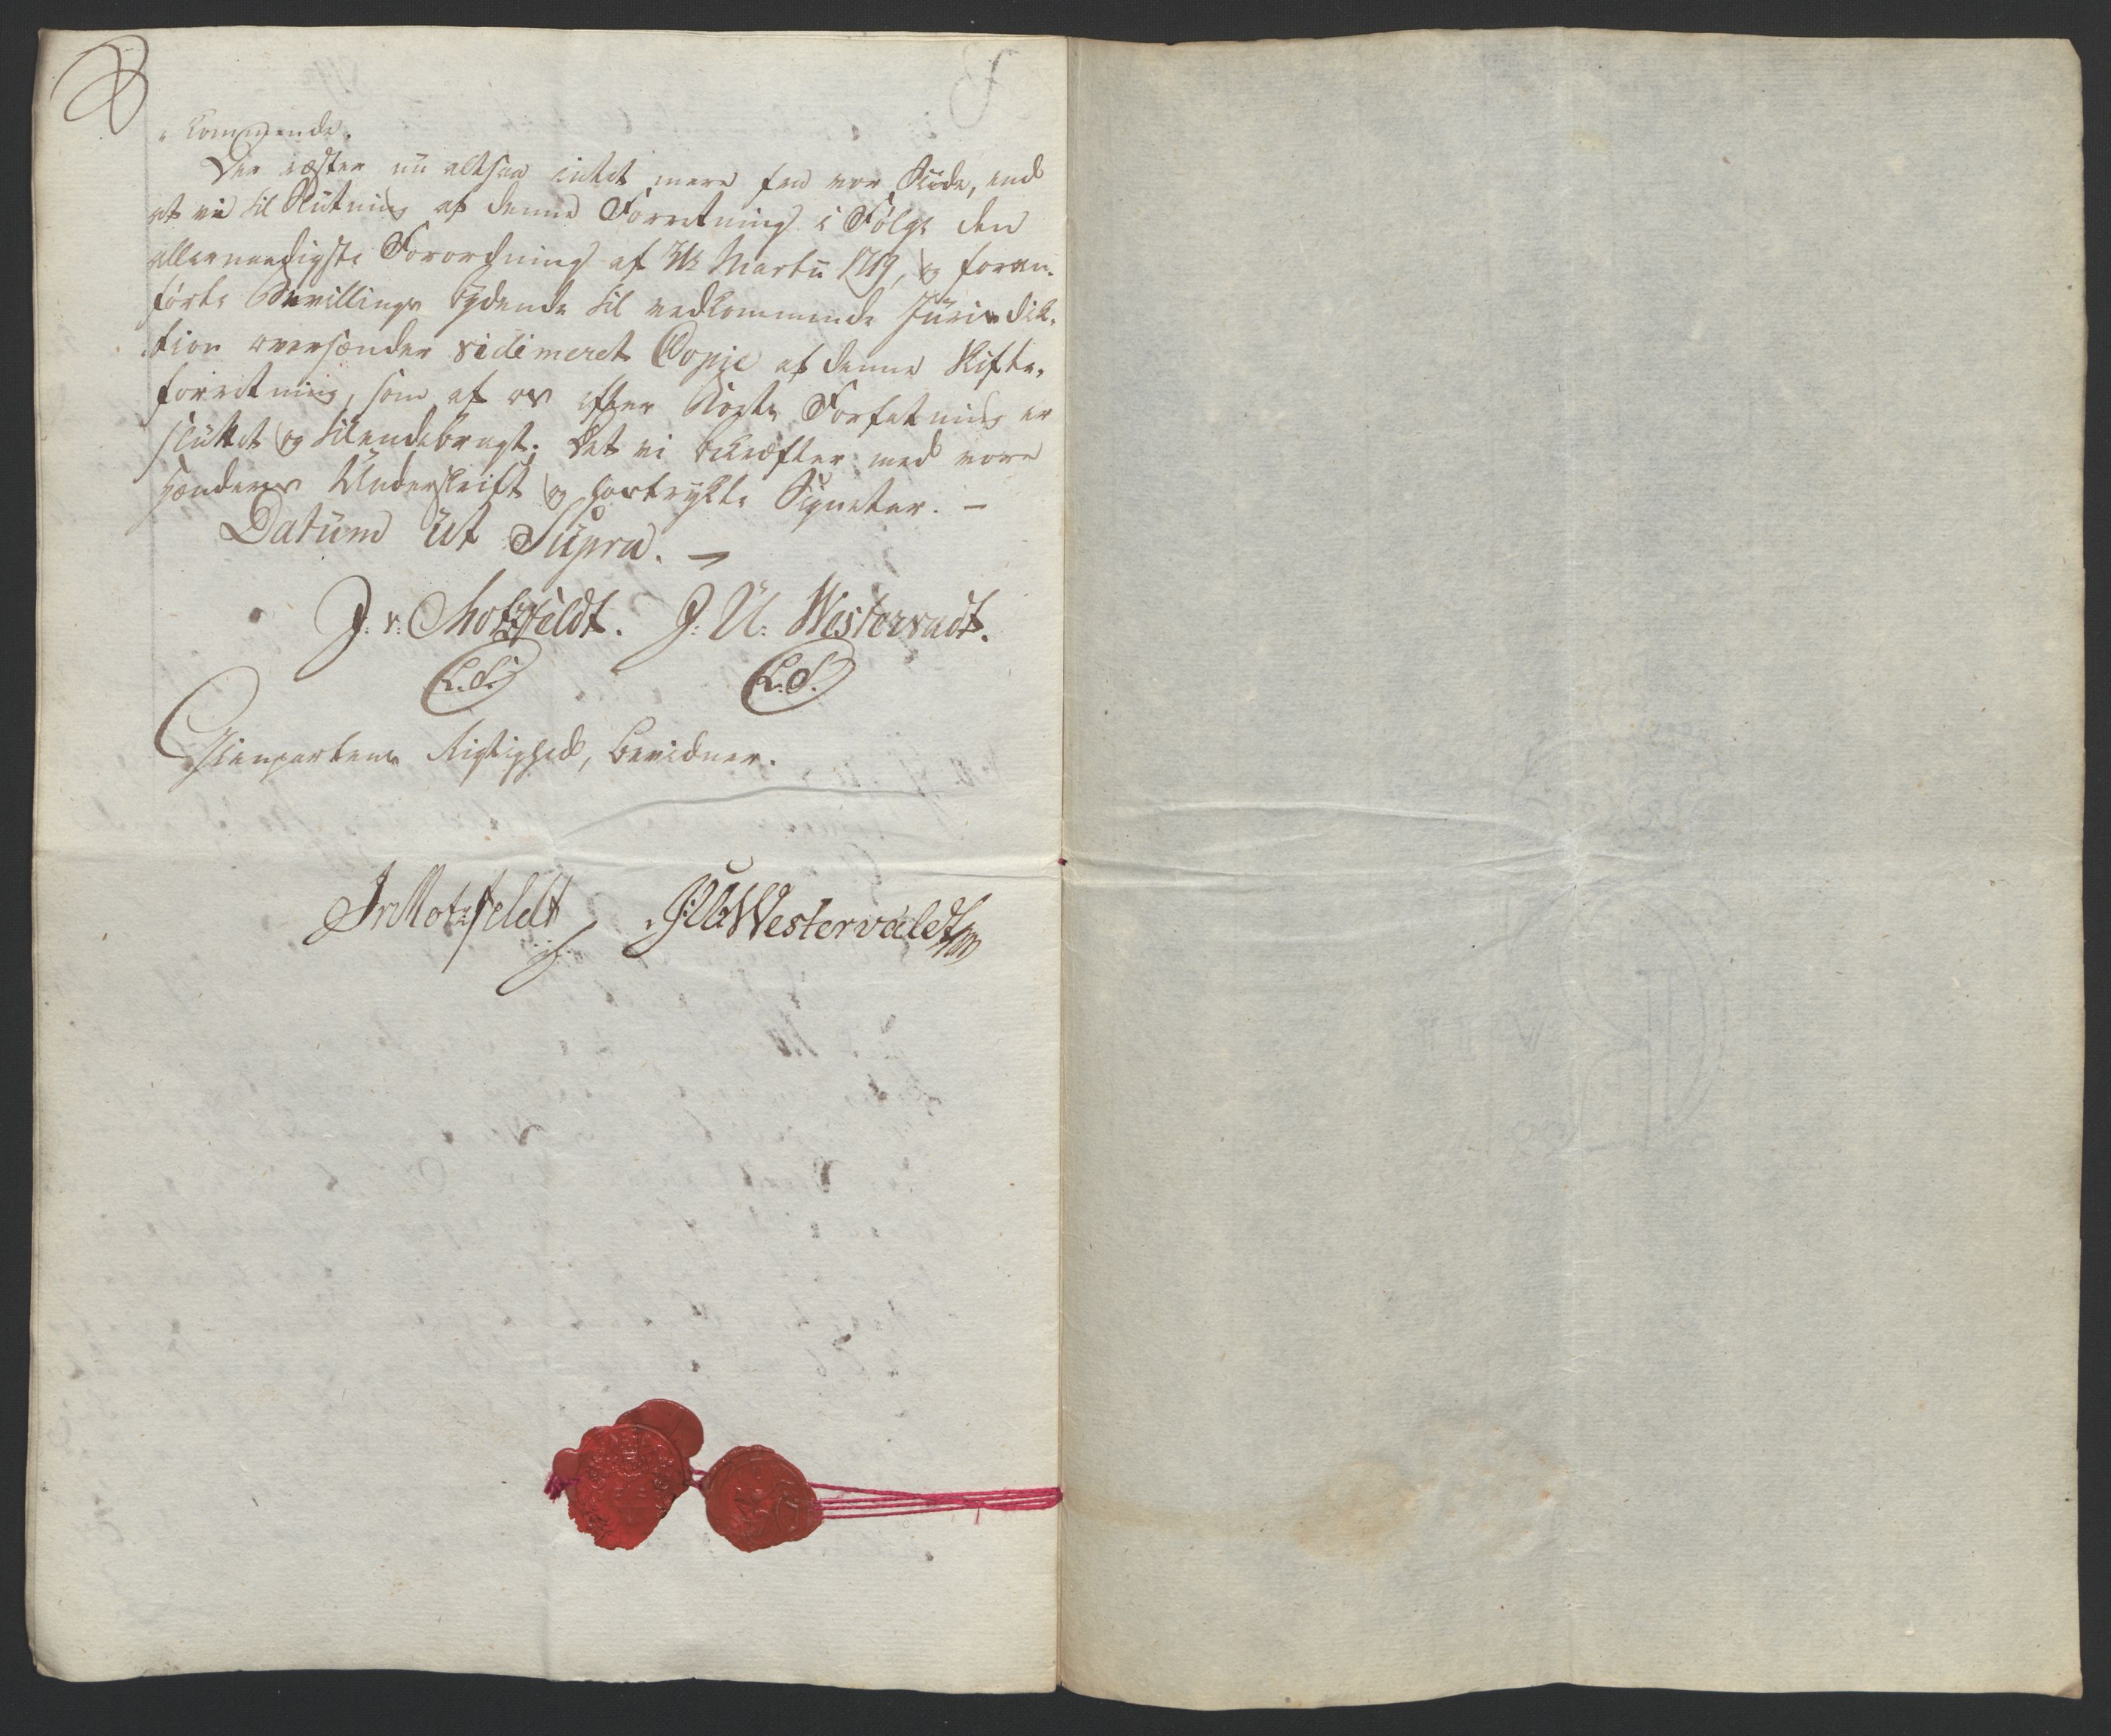 kommende.
Der ræster nu altsaa intet mere fra vor Side, end
at vi til Slutning af denne Forretning i Følge den
allernaadigste Forordning af Martii 1719, og foran-
førte Bevillings Bydende til vedkommende Jurisdik-
tion oversender vidimeret Copie af denne Skifte-
forretning, som af os efter Forfatning er
sluttet og tilendebragt; Det vi bekræfter med vore
hænders Underskrift og hostrykte Signeter. –
Datum Ut Supra. –
J. v: Motzfeldt. J: U: Westervadt.
L.S. L.S.
Gienpartens Rigtighed, bevidner.
JvMotzfeldt J:U:Westervaldt